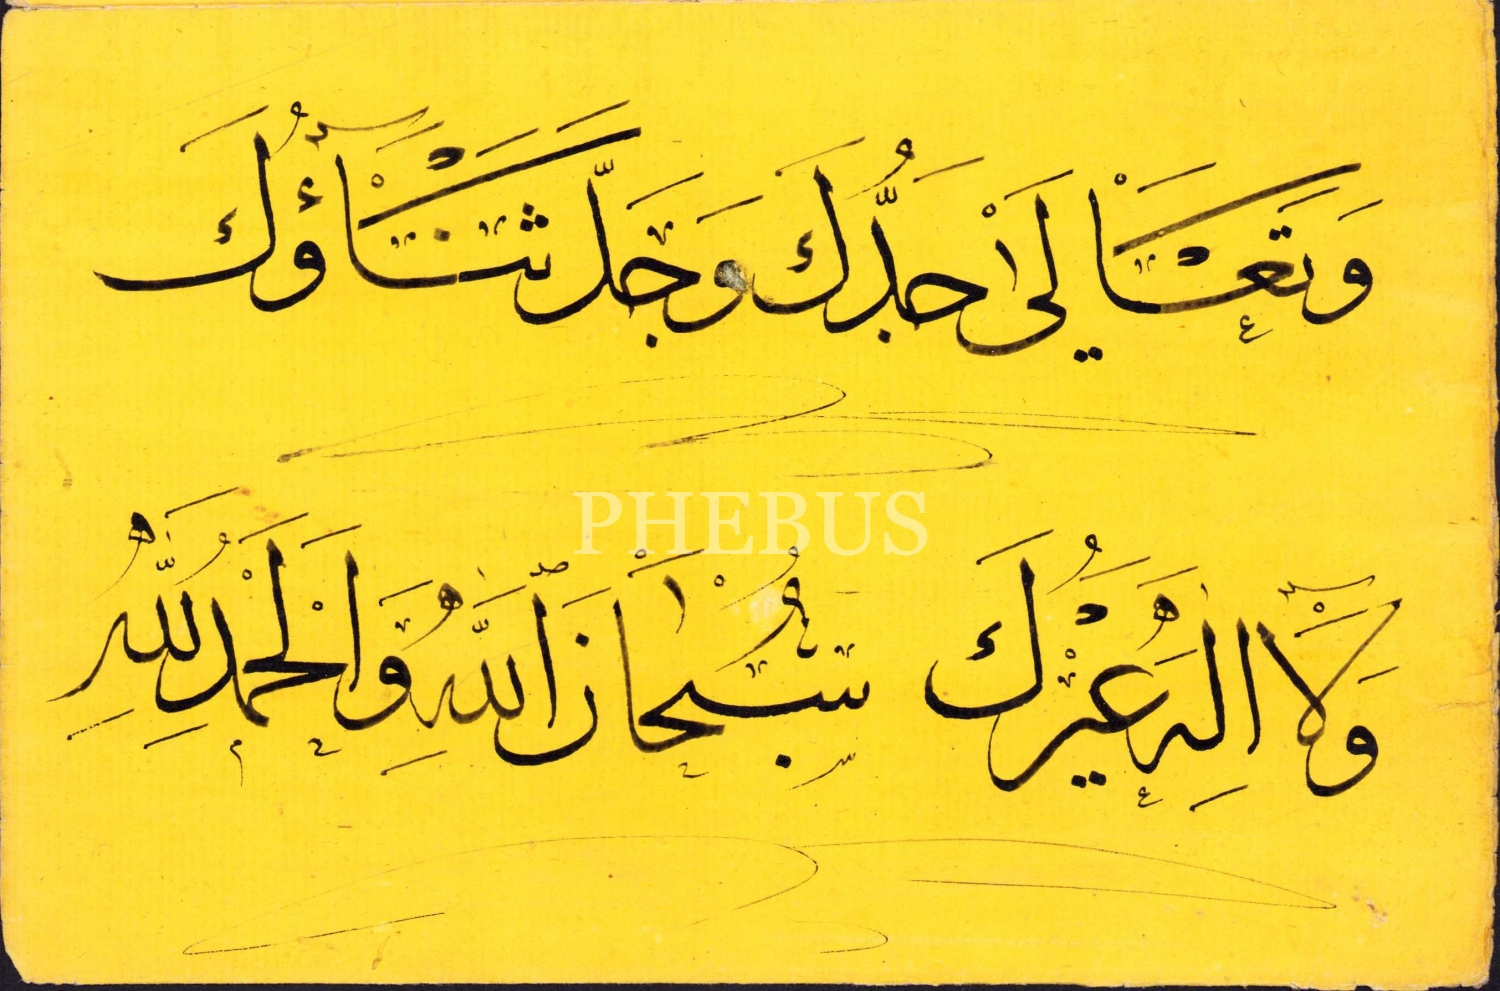 وَتَعَالَىٰ جَدُّكَ وَجَلَّ ثَنَاؤُكَ
PHEBUS
وَلَا اِلٰهَ غَيْرُكَ سُبْحَانَ ٱللّٰهِ وَالْحَمْدُ لِلّٰهِ